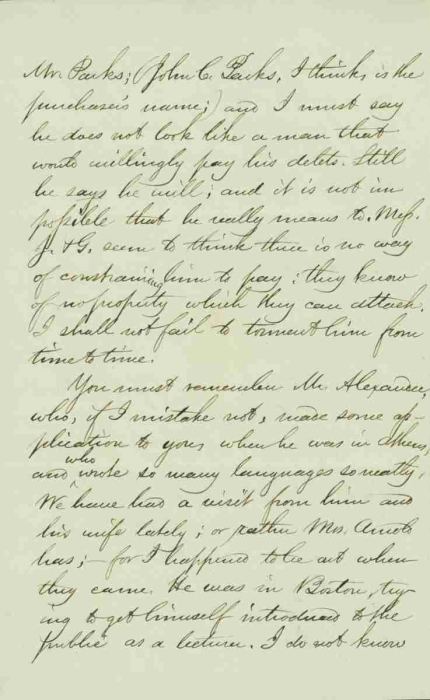 Mr. Parks; (John C. Parks, I think, is the
purchaser's name;) and I must say
he does not look like a man that
would willingly pay his debts. Still
he says he will; and it is not im
possible that he really means to. Mess.
J. & G. seem to think there is no way
of constraining him to pay: they know
of no property which they can attach.
I shall not fail to torment him from
time to time.
You must remember Mr. Alexander,
who, if I mistake not, made some ap-
plication to you, when he was in Athens,
and who wrote so many languages so neatly.
We have had a visit from him and
his wife lately; or rather Mrs. Arnold
has; — for I happened to be out when
they came. He was in Boston, try-
ing to get himself introduced to the
public as a lecturer. I do not know